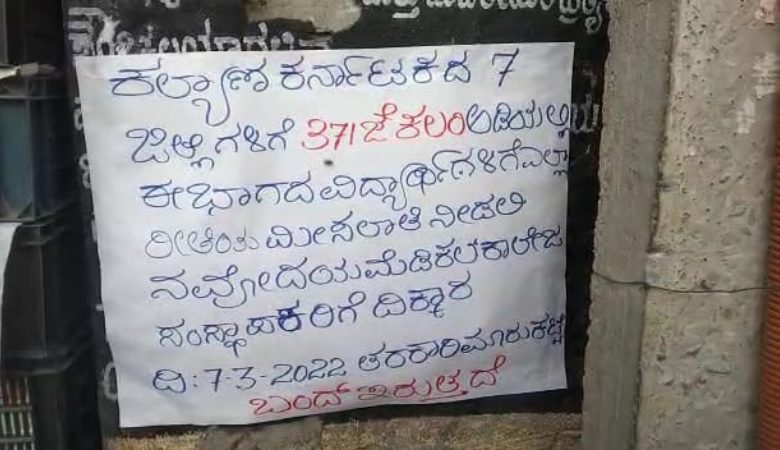 ಕಲ್ಯಾಣ ಕರ್ನಾಟಕದ 7
ಜಿಲ್ಲೆಗಳಿಗೆ 371ಜೆ ಕಲಂ ಅಡಿಯಲ್ಲಿ
ಈ ಭಾಗದ ವಿದ್ಯಾರ್ಥಿಗಳಿಗೆ ಎಲ್ಲಾ
ರೀತಿಯ ಮೀಸಲಾತಿ ನೀಡಲಿ
ನವೋದಯ ಮೆಡಿಕಲ ಕಾಲೇಜ
ಸಂಸ್ಥಾಪಕರಿಗೆ ದಿಕ್ಕಾರ
ದಿ: 7-3-2022 ತರಕಾರಿ ಮಾರುಕಟ್ಟೆ
ಬಂದ್ ಇರುತ್ತದೆ